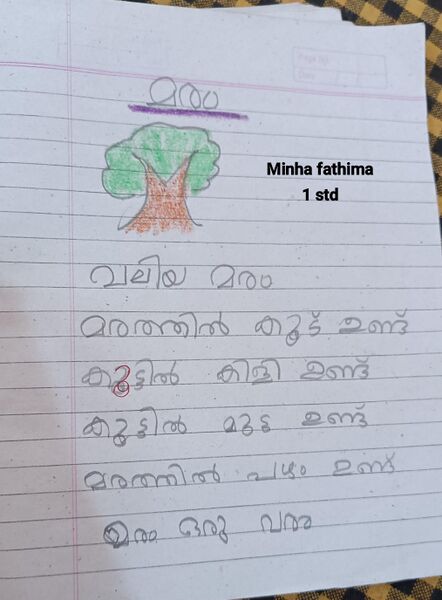 Page No.
Date
മരം
Minha fathima
1 std
വലിയ മരം
മരത്തിൽ കൂട് ഉണ്ട്
കൂട്ടിൽ കിളി ഉണ്ട്
കൂട്ടിൽ മുട്ട ഉണ്ട്
മരത്തിൽ പഴം ഉണ്ട്
മരം ഒരു വരം